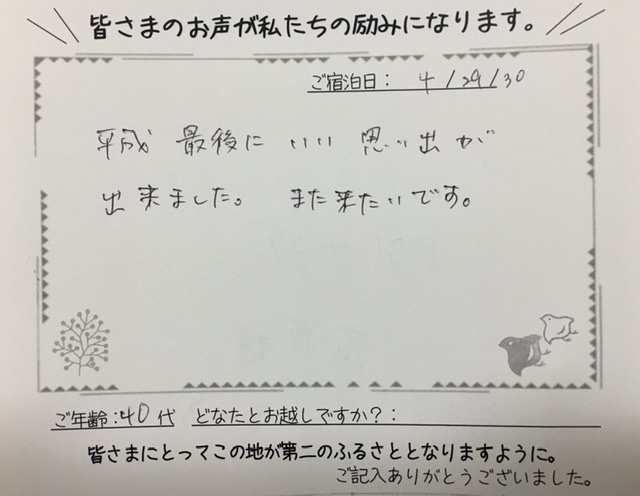 皆さまのお声が私たちの励みになります。
ご宿泊日: 4/29/30
平成 最後に いい 思い出が
出来ました。 また来たいです。
ご年齢:40代 どなたとお越しですか?:
皆さまにとってこの地が第二のふるさととなりますように。
ご記入ありがとうございました。